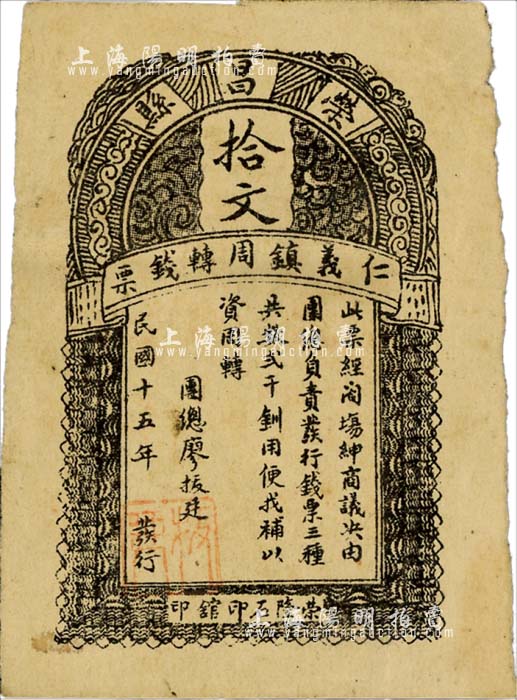 上海陽明拍賣
www.yangmingauction.com
榮昌縣
拾文
仁義鎮周轉錢票
此票經閤塲紳商議决由
團總負責發行錢票三種
共額弍千釧用便找補以
資週轉
團總廖拔廷
民國十五年 發行
上海陽明拍賣
www.yangmingauction.com
榮隆石印舘印
上海陽明拍賣
www.yangmingauction.com